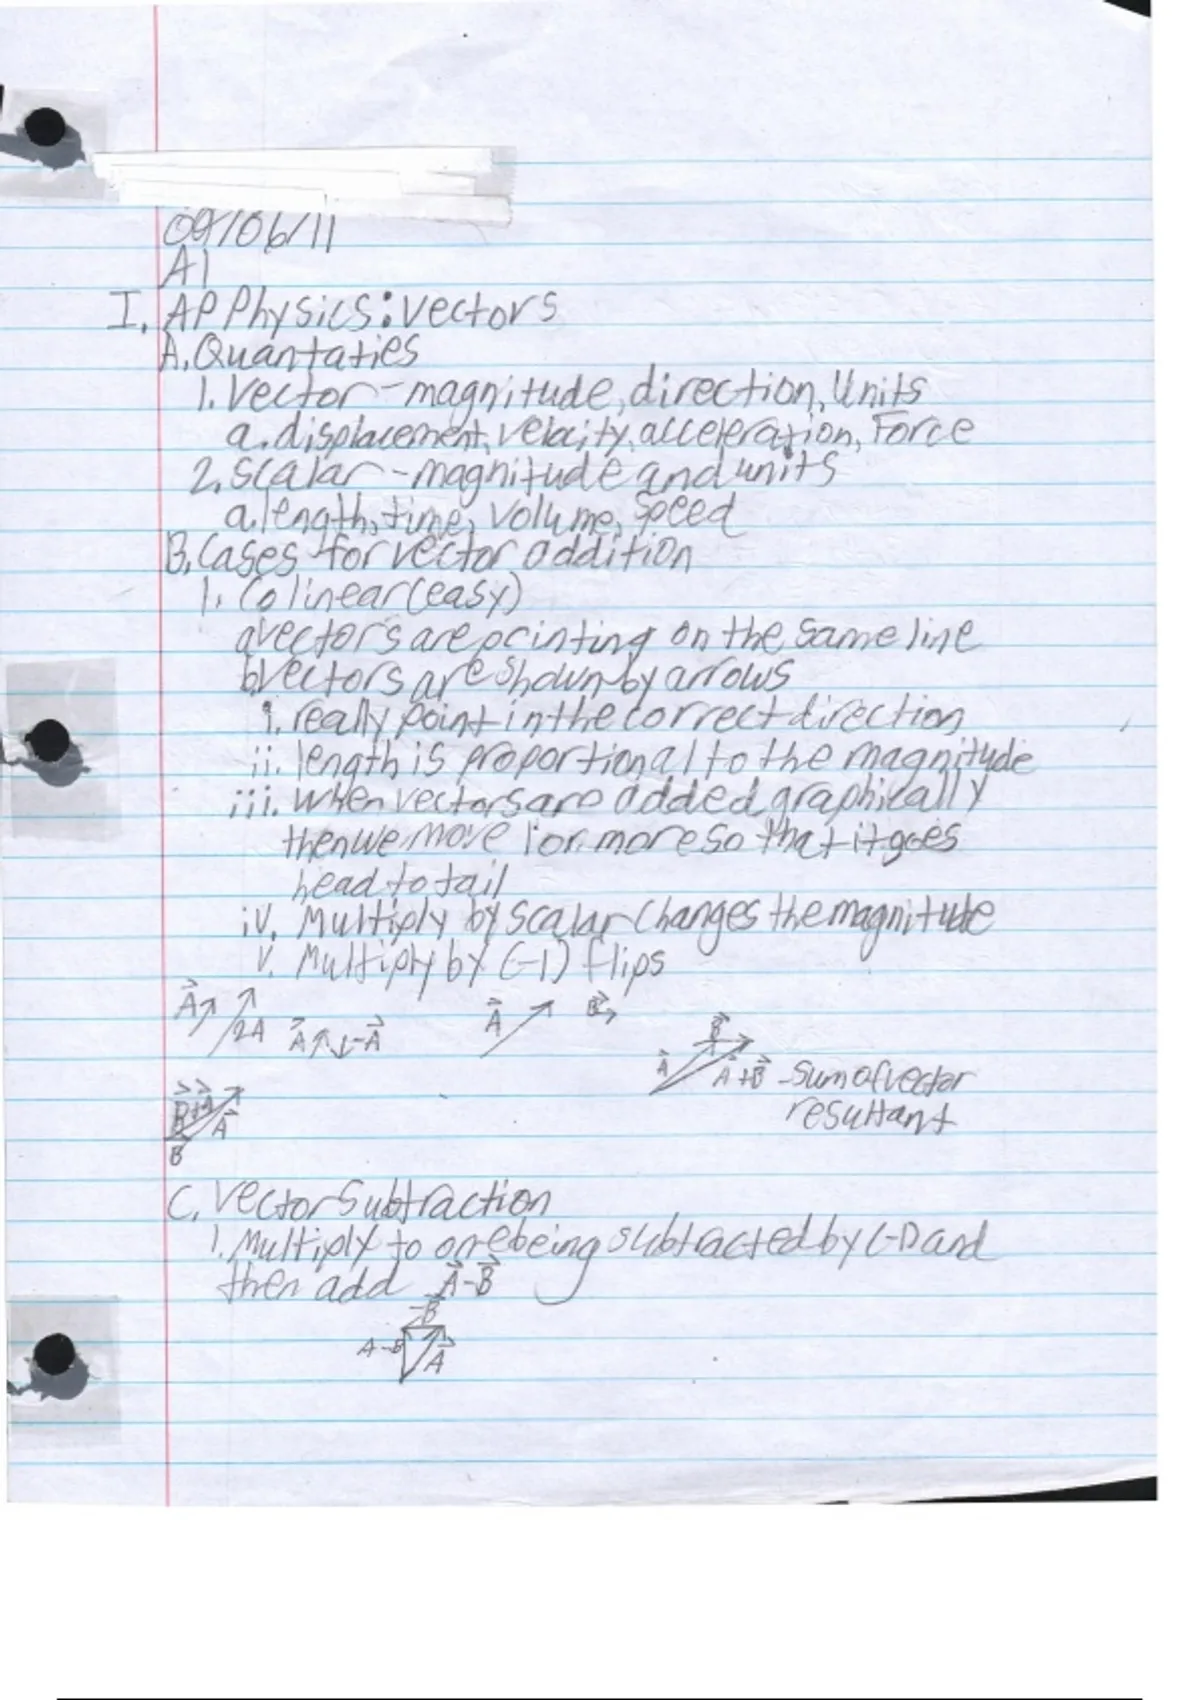 09/06/11
A1
I. AP Physics: vectors
A. Quantaties
1. Vector - magnitude, direction, Units
a. displacement, velocity, acceleration, Force
2. Scalar - magnitude and units
a. length, time, volume, speed
B. Cases for vector addition
1. Colinear (easy)
a vectors are pointing on the same line
b vectors are shown by arrows
i. really point in the correct direction
ii. length is proportional to the magnitude
iii. when vectors are added graphically
then we move 1 or more so that it goes
head to tail
iv. Multiply by scalar changes the magnitude
v. Multiply by (-1) flips
A⃗ 2A A⃗ -A⃗ A⃗ B⃗
B⃗
A⃗ A⃗+B⃗ - sum of vector
resultant
B⃗+A⃗
A⃗
B
C. Vector Subtraction
1. Multiply to one being subtracted by (-1) and
then add A⃗-B⃗
-B⃗
A-B A⃗